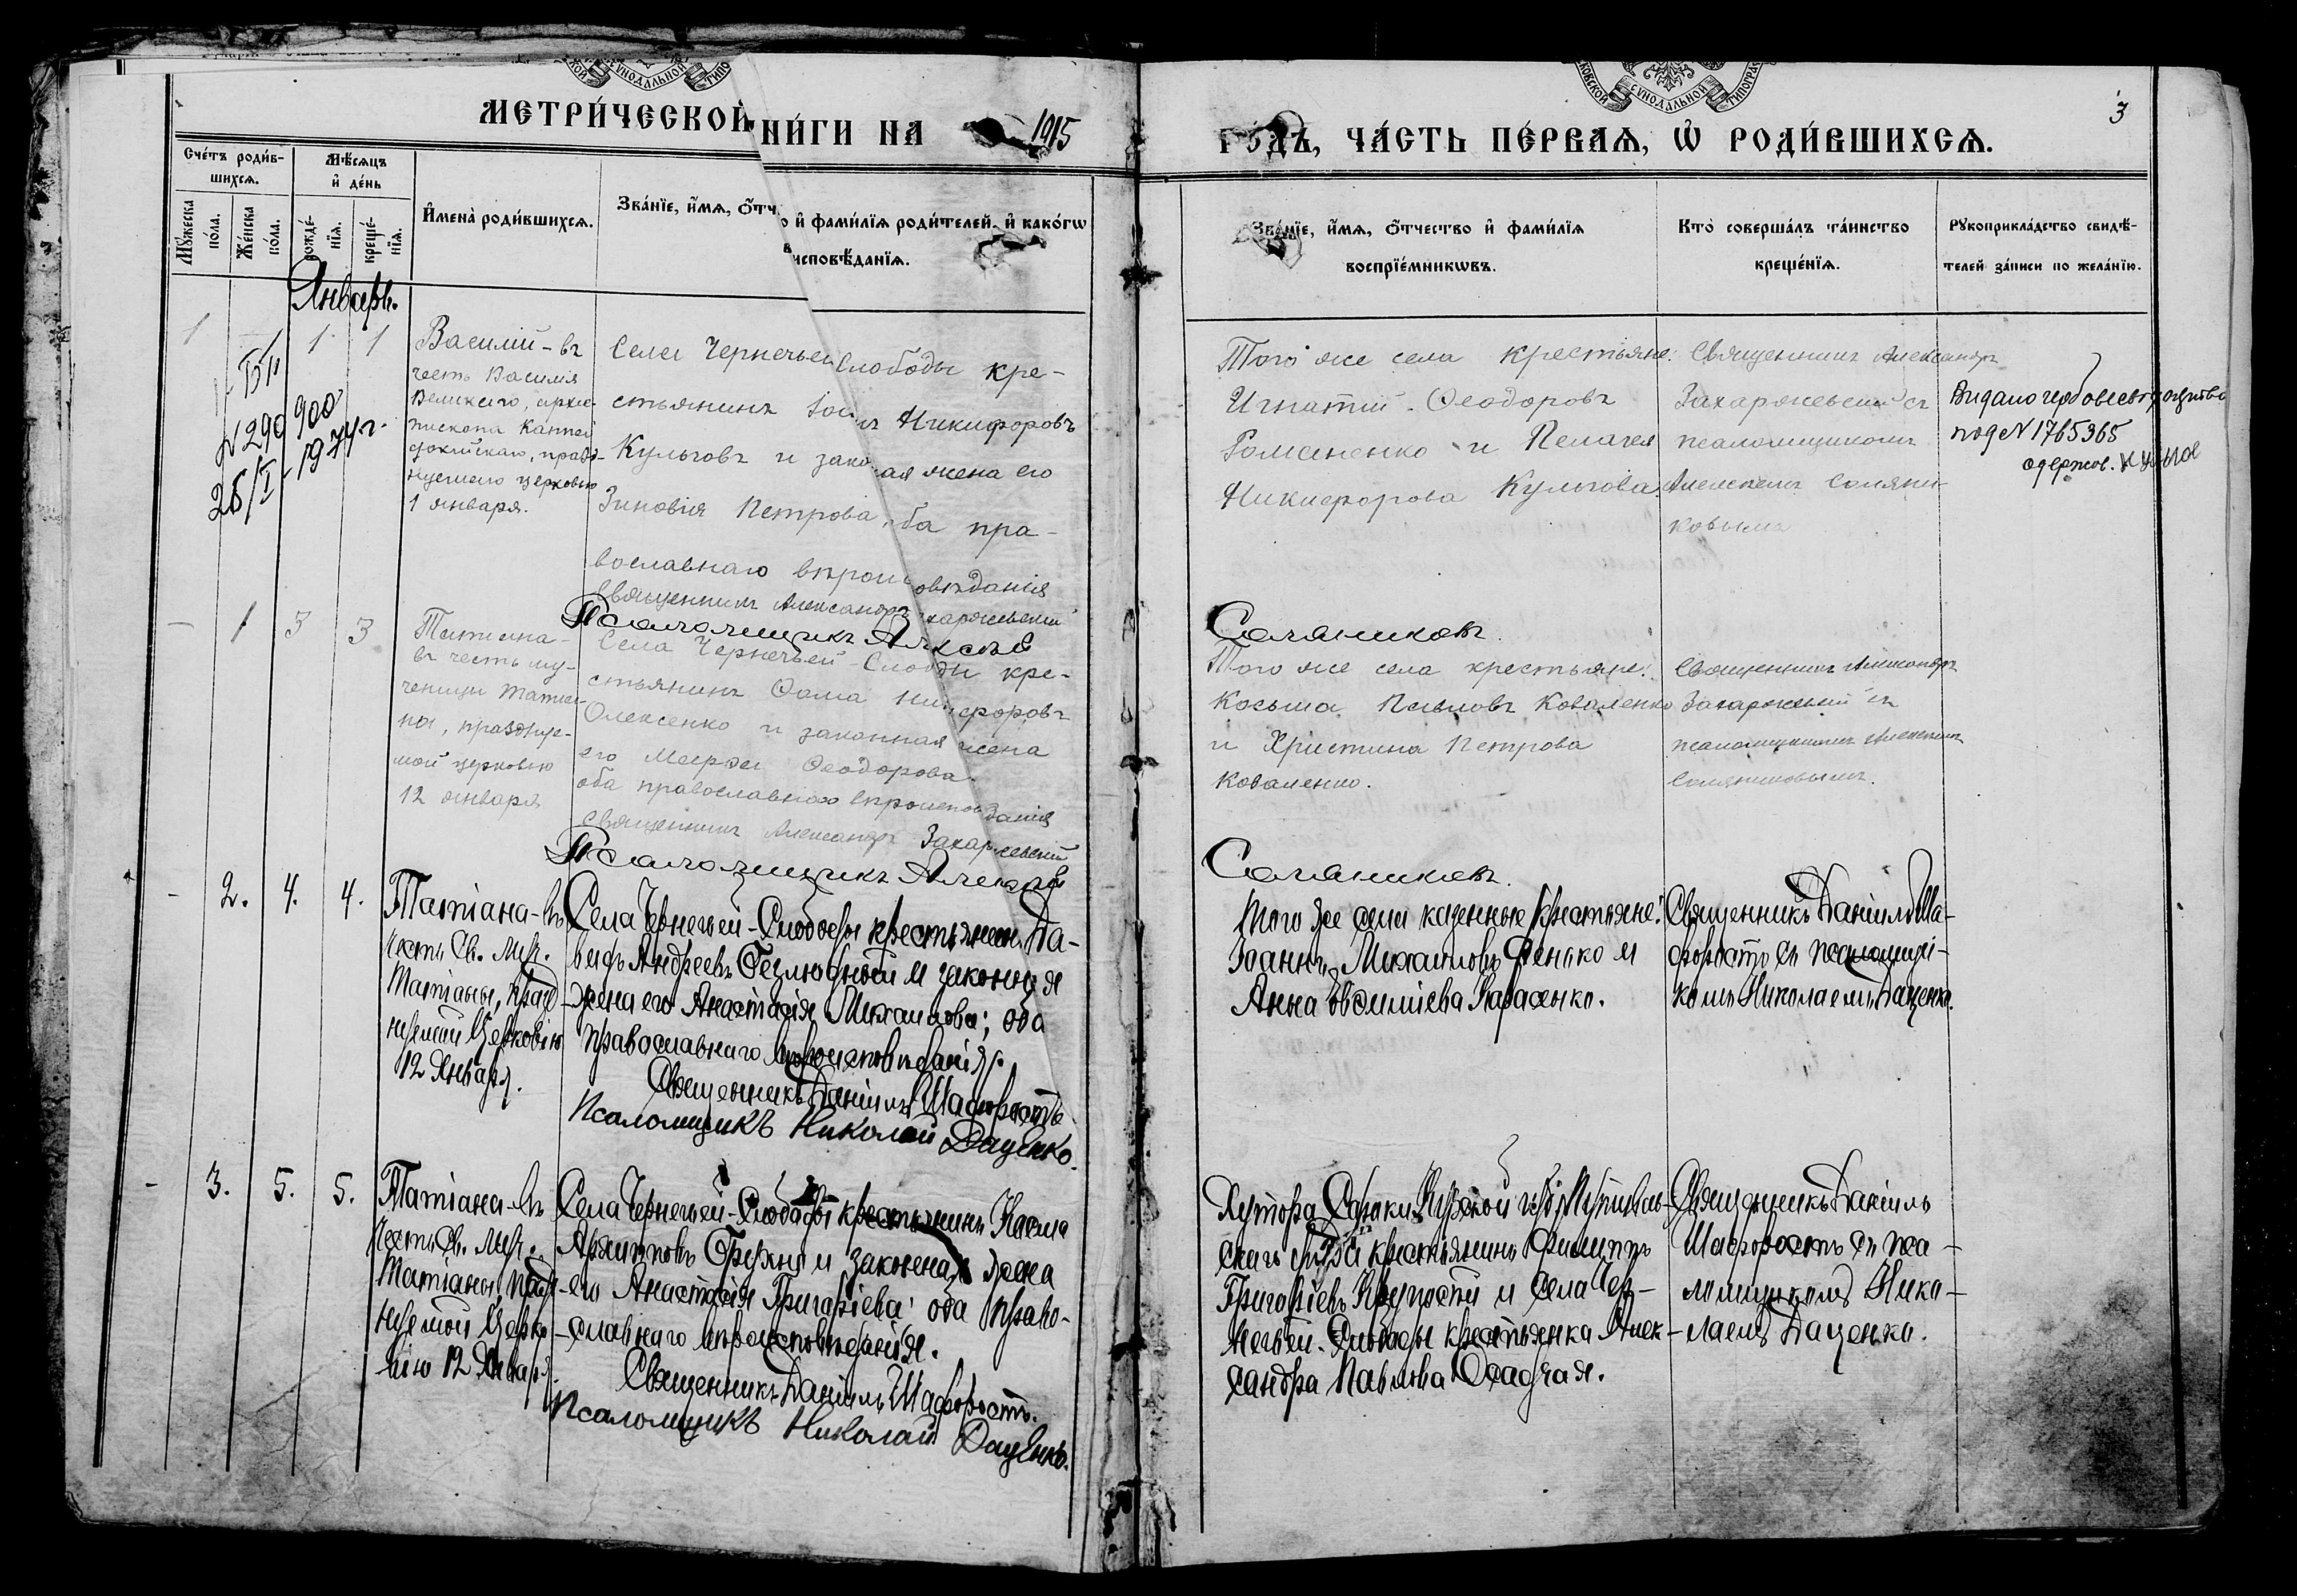 МЕТРИ́ЧЕСКОЙ
НИ́ГИ НА 1915
ГО́ДЪ, ЧА́СТЬ ПЕ́РВАѦ, Ѿ РОДИ́ВШИХСѦ.
3
СѴНОДАЛЬНОЙ
МОСКОВСКОЙ СѴНОДАЛЬНОЙ ТИПОГРАФ
Сче́тъ роди́в-
шихсѧ.
Мѣ́сѧцъ
и҆ де́нь
Мꙋ́жеска
по́ла.
Же́нска
по́ла.
рожде́-
нїѧ.
креще́-
нїѧ.
И҆мена̀ роди́вшихсѧ.
Зва́нїе, и҆́мѧ, ѻ҆́тч
о и҆ фами́лїѧ роди́телей, и҆ како́гѡ
в
исповѣ́данїѧ.
Зва́нїе, и҆́мѧ, ѻ҆́тчество и҆ фами́лїѧ
воспрїе́мникѡвъ.
Кто̀ соверша́лъ та́инство
креще́нїѧ.
Рꙋкоприкла́дство свидѣ́-
телей за́писи по жела́нїю.
Январь.
1 — 1 1
БП
N 290900
26/I - 1974 г.
Василий - въ
честь Василия
Великаго, архие-
пископа Каппа
докийскаго, празд-
нуемаго церковью
1 января.
Села Чернечьей Слободы кре-
стьянинъ Никифоровъ
Кульговъ и зако ая жена его
Зиновія Петрова, ба пра-
вославнаго вѣроис овѣданія
Священникъ Александръ харжевский
Псаломщикъ Алексѣй
Соляниковъ.
Того же села крестьяне:
Игнатий Ѳеодоровъ
Романенко и Пелагея
Никифорова Кульгова.
Священникъ Александръ
Захаржевский съ
псаломщикомъ
Алексеемъ Соляни-
ковымъ
Видано гербове свидоцтво
под N 1765365
одержов.
— 1 3 3
Татиана -
въ честь му-
ченицы Татиа-
ны, празднуе-
мой церковью
12 января
Села Чернечьей Слободы кре-
стьянинъ Ѳома Никифоровъ
Олексенко и законная жена
его Марѳа Ѳеодорова.
оба православнаго вѣроисповѣданія
Священникъ Александръ Захаржевский
Псаломщикъ Алексѣй
Соляниковъ.
Того же села крестьяне:
Косьма Павловъ Коваленко
и Христина Петрова
Коваленко.
Священникъ Александръ
Захаржевский съ
псаломщикомъ Алексеемъ
Соляниковымъ.
- 2. 4. 4.
Татіана - въ
честь Св. муч.
Татіаны, празд-
нуемой Церковію
12 Января.
Села Чернечьей - Слободы крестьянинъ Да-
видъ Андреевъ и законная
жена его Анастасія Михаилова; оба
православнаго вѣроисповѣданія.
Священникъ Даніилъ Шафоростъ
Псаломщикъ Николай Даценко.
Того же села казенные крестьяне:
Іоаннъ Михаиловъ Фенько и
Анна Евѳиміева Карасенко.
Священникъ Даніилъ Ша-
форостъ съ псаломщи-
комъ Николаемъ Даценко.
- 3. 5. 5.
Татіана - въ
честь Св. муч.
Татіаны, празд-
нуемой Церко-
вію 12 Января.
Села Чернечьей - Слободы крестьянинъ Косма
Архиповъ и законная жена
его Анастасія Григоріева; оба право-
славнаго вѣроисповѣданія.
Священникъ Даніилъ Шафоростъ.
Псаломщикъ Николай Даценко.
Хутора Курской губ. Путивль-
скаго уѣзда крестьянинъ Филиппъ
Григоріевъ и села Чер-
нечьей - Слободы крестьянка Алек-
сандра Павлова Осадчая.
Священникъ Даніилъ
Шафоростъ съ пса-
ломщикомъ Нико-
лаемъ Даценко.